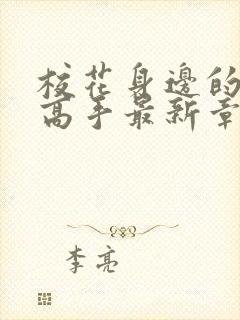 校花身邊的
高手最新章
李亮